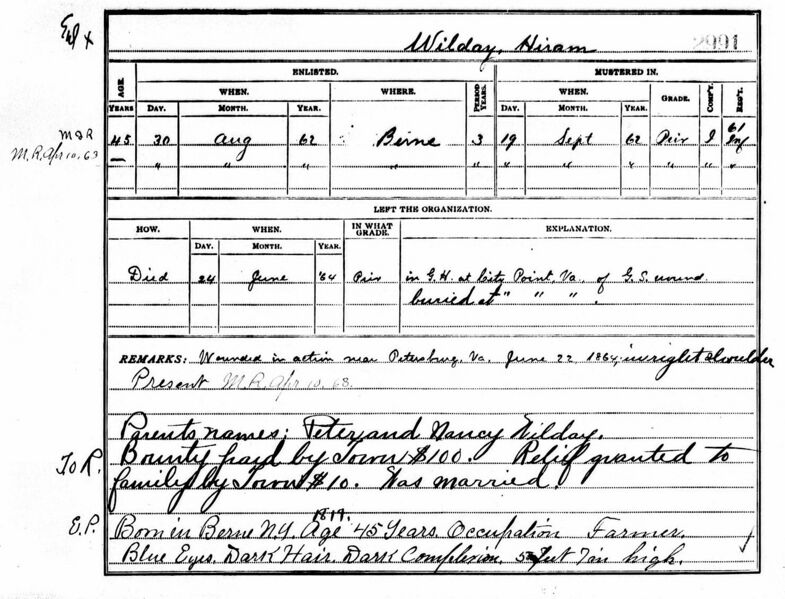 Wilday, Hiram 2991
ENLISTED. MUSTERED IN.
AGE. WHEN. WHERE. PERIOD YEARS. WHEN. GRADE. COMP'Y. REG'T.
YEARS DAY. MONTH. YEAR. DAY. MONTH. YEAR.
M & R 45 30 Aug 62 Berne 3 19 Sept 62 Priv I 61 Inf
M.R. Apr 10, 63 " " " " " " " " " " "
LEFT THE ORGANIZATION.
HOW. WHEN. IN WHAT GRADE. EXPLANATION.
DAY. MONTH. YEAR.
Died 24 June '64 Priv in G.H. at City Point, Va. of G.S. wound.
buried at " " " .
REMARKS: Wounded in action near Petersburg, Va. June 22, 1864, in right shoulder
Present M.R. Apr 10, 63.
Parents names; Peter and Nancy Wilday.
To R. Bounty paid by Town $100. Relief granted to
family by Town $10. Was married.
1817.
E.P. Born in Berne N.Y. Age 45 Years. Occupation Farmer.
Blue Eyes. Dark Hair. Dark Complexion, 5 feet 7 in high.